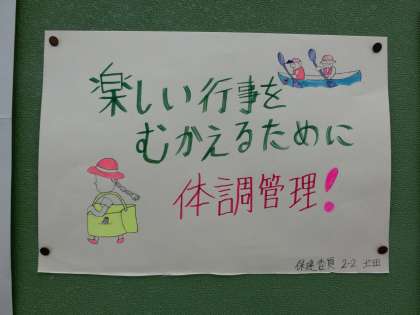 楽しい行事を
むかえるために
体調管理!
保健委員 2-2 土田